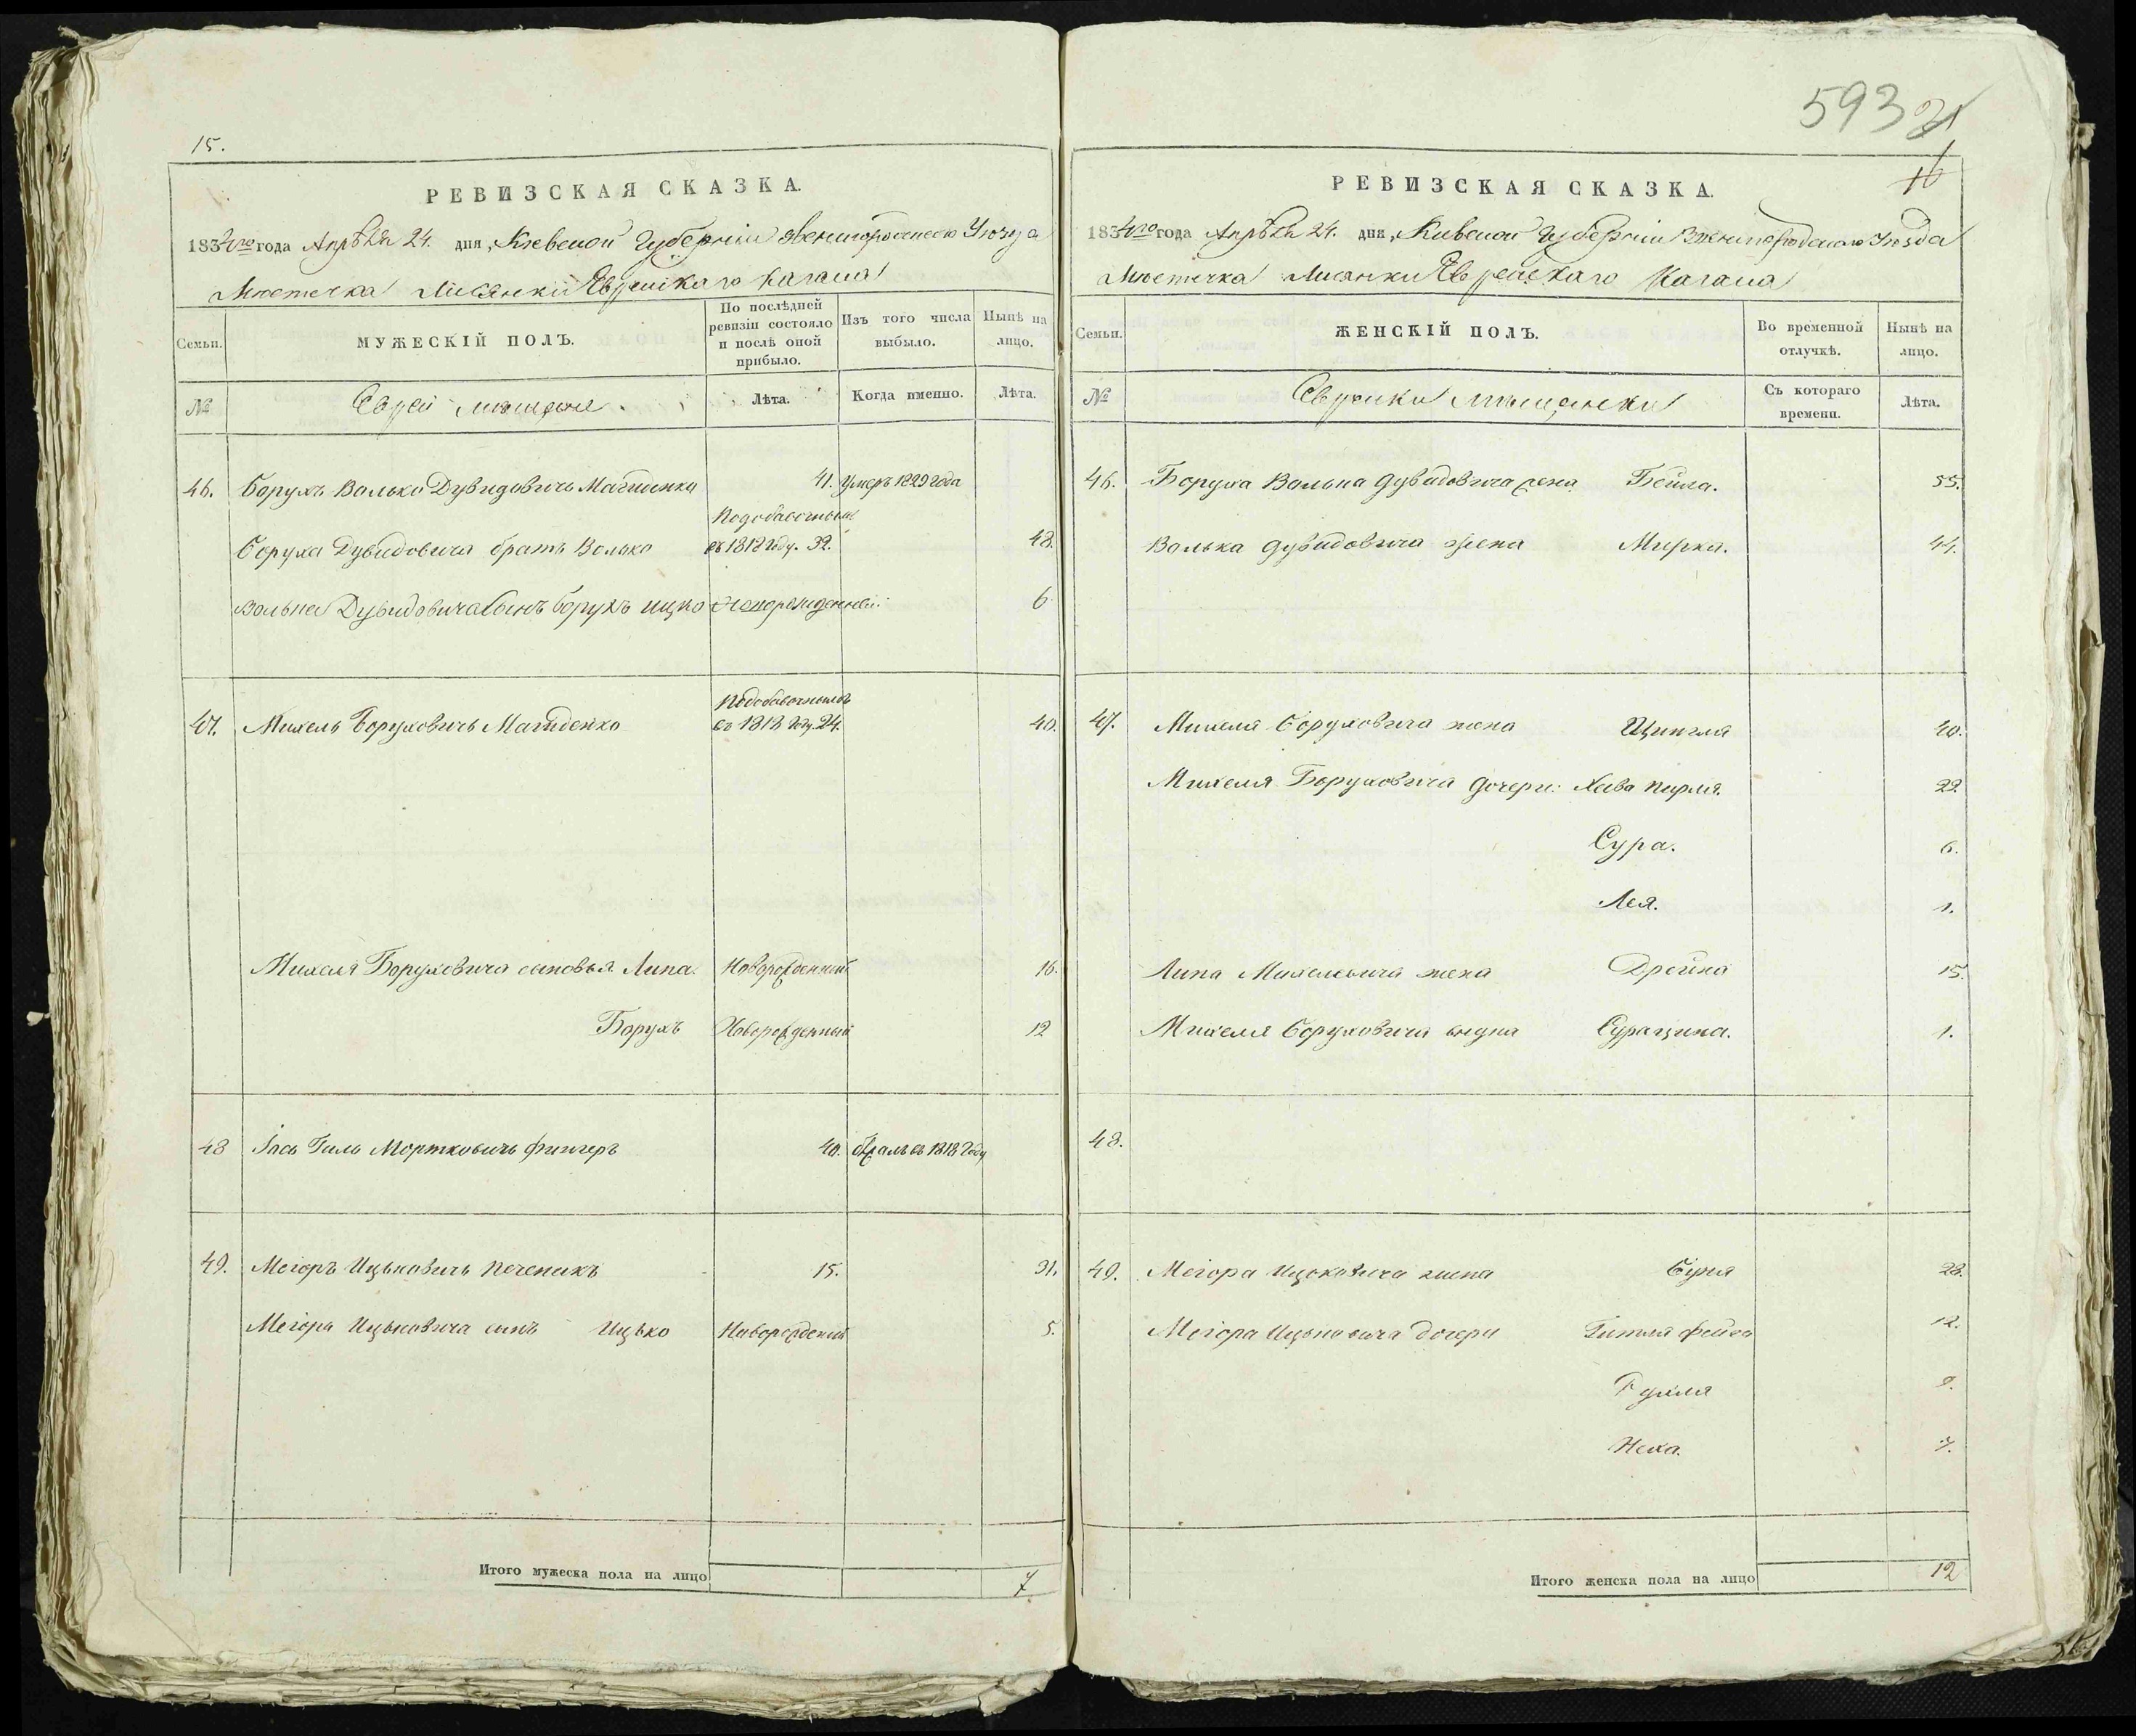 15.
РЕВИЗСКАЯ СКАЗКА.
1834го года Апрѣля 24. дня, Киевской Губерніи Звенигородского Уѣзда
Мѣстечка Лисянки Еврейскаго Кагала
Семьи. МУЖЕСКІЙ ПОЛЪ. По послѣдней ревизіи состояло и послѣ оной прибыло. Изъ того числа выбыло. Нынѣ на лицо.
№ Евреи мѣщане. Лѣта. Когда именно. Лѣта.
46. Борухъ Волько Дувидовичъ Магиденко 41. умеръ 1829 года
Боруха Дувидовича братъ Волько Подобавочнымъ въ 1818 году. 32. 48.
Волька Дувидовича сынъ Борухъ Ицко Новорожденный 6
47. Михель Боруховичъ Магиденко Подобавочнымъ въ 1818 году. 24. 40.
Михеля Боруховича сыновья Липа. Новорожденный 16.
Борухъ Новорожденный 12
48 Іось Гиль Мортковичъ Фингеръ 40. въ 1818 году
49. Меіоръ Ицьковичъ Печеникъ 15. 31.
Меіора Ицьковича сынъ Ицько Новорожденный 5.
Итого мужеска пола на лицо 7
593
16
РЕВИЗСКАЯ СКАЗКА.
1834го года Апрѣля 24. дня, Киевской Губерніи Звенигородскаго Уѣзда
Мѣстечка Лисянки Еврейскаго Кагала
Семьи. ЖЕНСКІЙ ПОЛЪ. Во временной отлучкѣ. Нынѣ на лицо.
№ Еврейки мѣщанки Съ котораго времени. Лѣта.
46. Боруха Волька Дувидовича жена Бейла. 55.
Волька Дувидовича жена Мирка. 44.
47. Михеля Боруховича жена 40.
Михеля Боруховича дочери: Хава Перля. 22
Сура. 6.
Лея. 1.
Липа Михелевича жена Дрейна 15.
Михеля Боруховича внука 1.
48.
49. Меіора Ицковича жена Буня 28.
Меіора Ицьковича дочери Гитля Фейга 12.
Рухля 9.
Неха. 7.
Итого женска пола на лицо 12